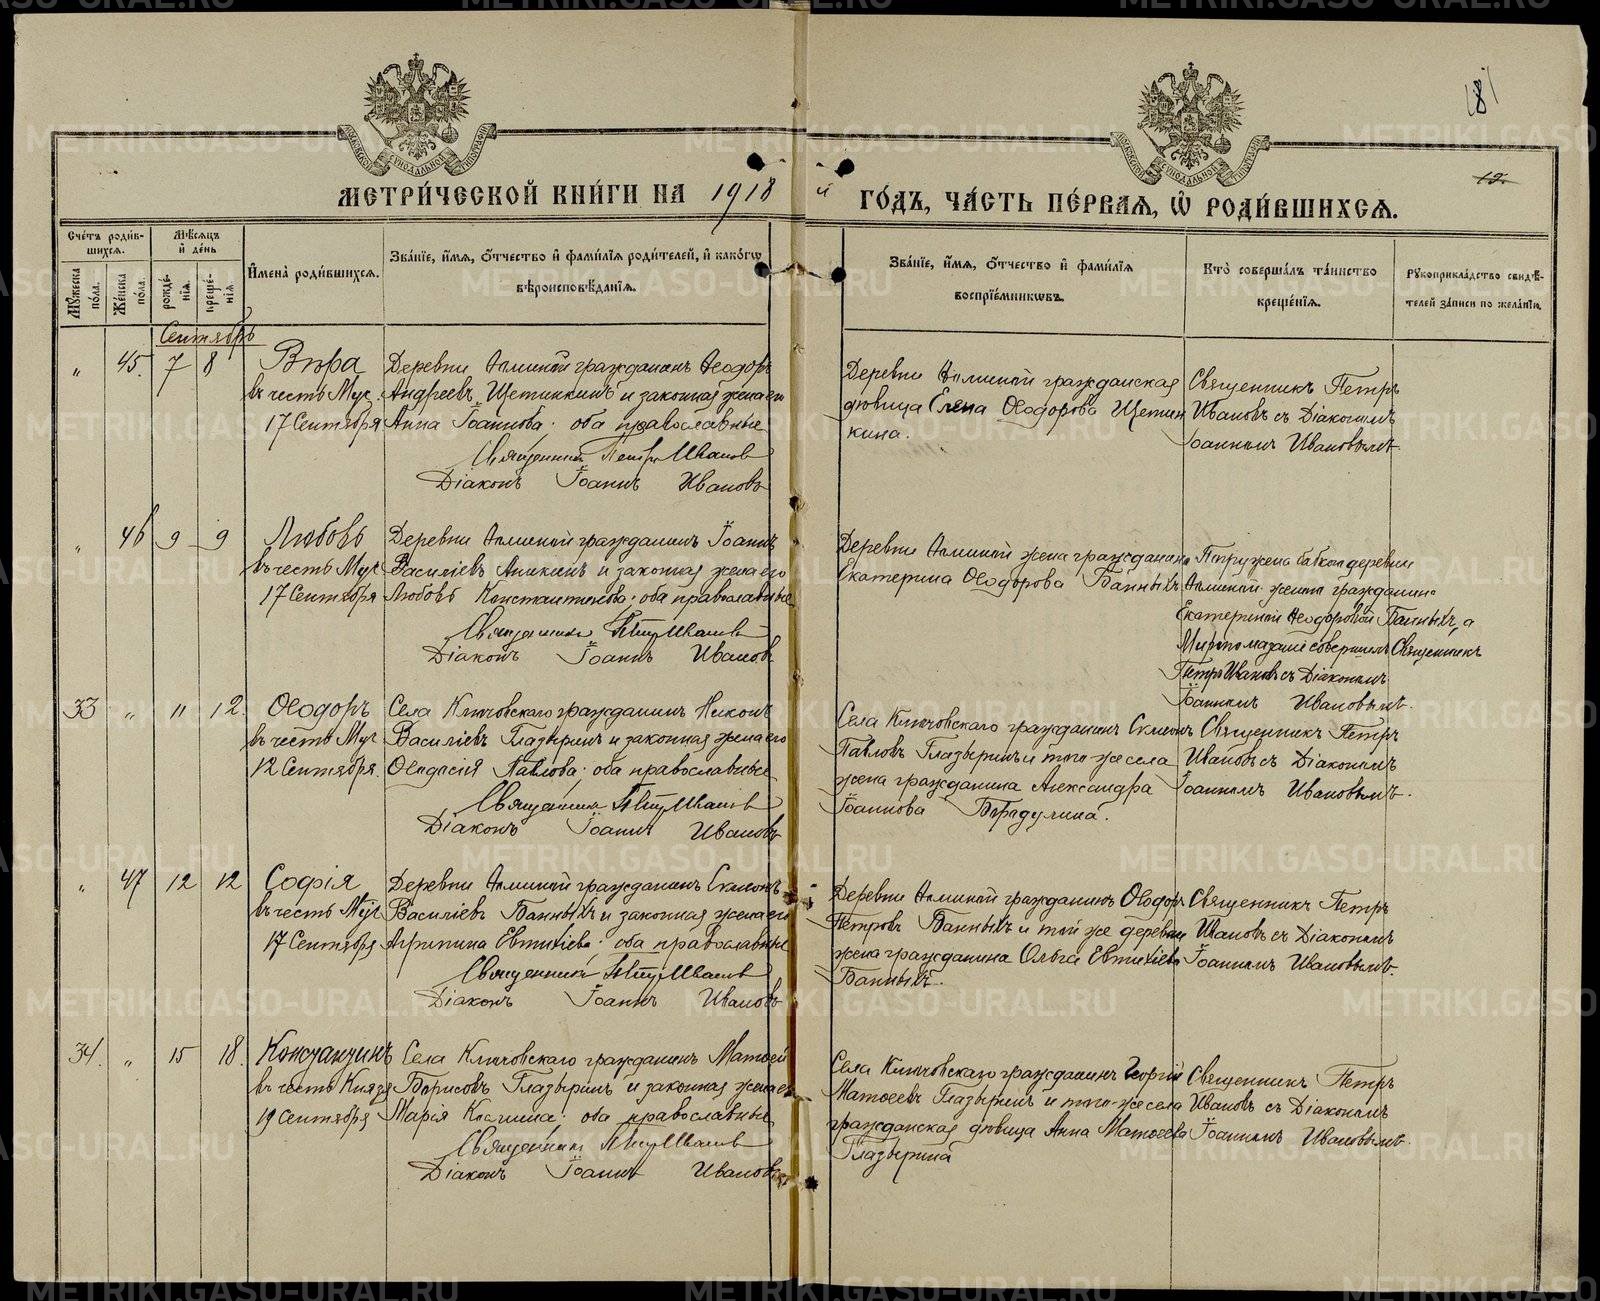 МЕТРИ́ЧЕСКОЙ КНИ́ГИ НА 1918 й ГО́ДЪ, ЧА́СТЬ ПЕ́РВАЯ, Ѡ РОДИ́ВШИХСЯ.
Сче́тъ роди́вшихся.
Му́жеска по́ла.
Же́нска по́ла.
Мѣ́сяцъ и҆ де́нь
рожде́нїя.
креще́нїя.
И҆мена̀ роди́вшихся.
Зва́нїе, и҆́мя, ѻ҆́тчество и҆ фами́лїя роди́телей, и҆ како́гѡ вѣроисповѣ́данїя.
Зва́нїе, и҆́мя, ѻ҆́тчество и҆ фами́лїя воспрїе́мникѡвъ.
Кто̀ соверша́лъ та́инство креще́нїя.
Рꙋкоприкла́дство свидѣ́телей за́писи по жела́нїю.
Сентябрь
" 45. 7 8
Вѣра
въ честь Муч.
17 Сентября
Деревни гражданинъ Ѳеодоръ
Андреевъ Щетинкинъ и законная жена его
Анна Іоаннова; оба православные
Священникъ Петръ Ивановъ
Діаконъ Іоаннъ Ивановъ
Деревни гражданская
дѣвица Елена Ѳеодорова Щетин
кина.
Священникъ Петръ
Ивановъ съ Діакономъ
Іоанномъ Ивановымъ.
" 46 9 9
Любовь
въ честь Муч
17 Сентября
Деревни гражданинъ Іоаннъ
Василіевъ Аникинъ и законная жена его
Любовь Константинова; оба православные
Священникъ Петръ Ивановъ
Діаконъ Іоаннъ Ивановъ
Деревни жена гражданина
Екатерина Ѳеодорова Банныхъ
Погружена бабкой деревни
женой гражданина
Екатериной Ѳеодоровой Банныхъ, а
Миропомазаніе совершилъ Священникъ
Петръ Ивановъ съ Діакономъ
Іоанномъ Ивановымъ.
33 " 11 12.
Ѳеодоръ
въ честь Муч
12 Сентября.
Села Ключовскаго гражданинъ Никонъ
Василіевъ Глазыринъ и законная жена его
Павлова; оба православные
Священникъ Петръ Ивановъ
Діаконъ Іоаннъ Ивановъ
Села Ключовскаго гражданинъ
Павловъ Глазыринъ и того-же села
жена гражданина Александра
Іоаннова Бородулина.
Священникъ Петръ
Ивановъ съ Діакономъ
Іоанномъ Ивановымъ.
" 47 12 12
Софія
въ честь Муч
17 Сентября
Деревни гражданинъ
Василіевъ Банныхъ и законная жена его
Агрипина Евтихіева; оба православные
Священникъ Петръ Ивановъ
Діаконъ Іоаннъ Ивановъ
Деревни гражданинъ Ѳеодоръ
Петровъ Банныхъ и той же деревни
жена гражданина Ольга Евтихіева
Банныхъ.
Священникъ Петръ
Ивановъ съ Діакономъ
Іоанномъ Ивановымъ.
34. " 15 18.
Константинъ
въ честь Князя
19 Сентября
Села Ключовскаго гражданинъ Матѳей
Борисовъ Глазыринъ и законная жена его
Марія оба православные
Священникъ Петръ Ивановъ
Діаконъ Іоаннъ Ивановъ
Села Ключовскаго гражданинъ Георгій
Матѳеевъ Глазыринъ и того-же села
гражданская дѣвица Анна Матѳеева
Глазырина
Священникъ Петръ
Ивановъ съ Діакономъ
Іоанномъ Ивановымъ.
METRIKI.GASO-URAL.RU